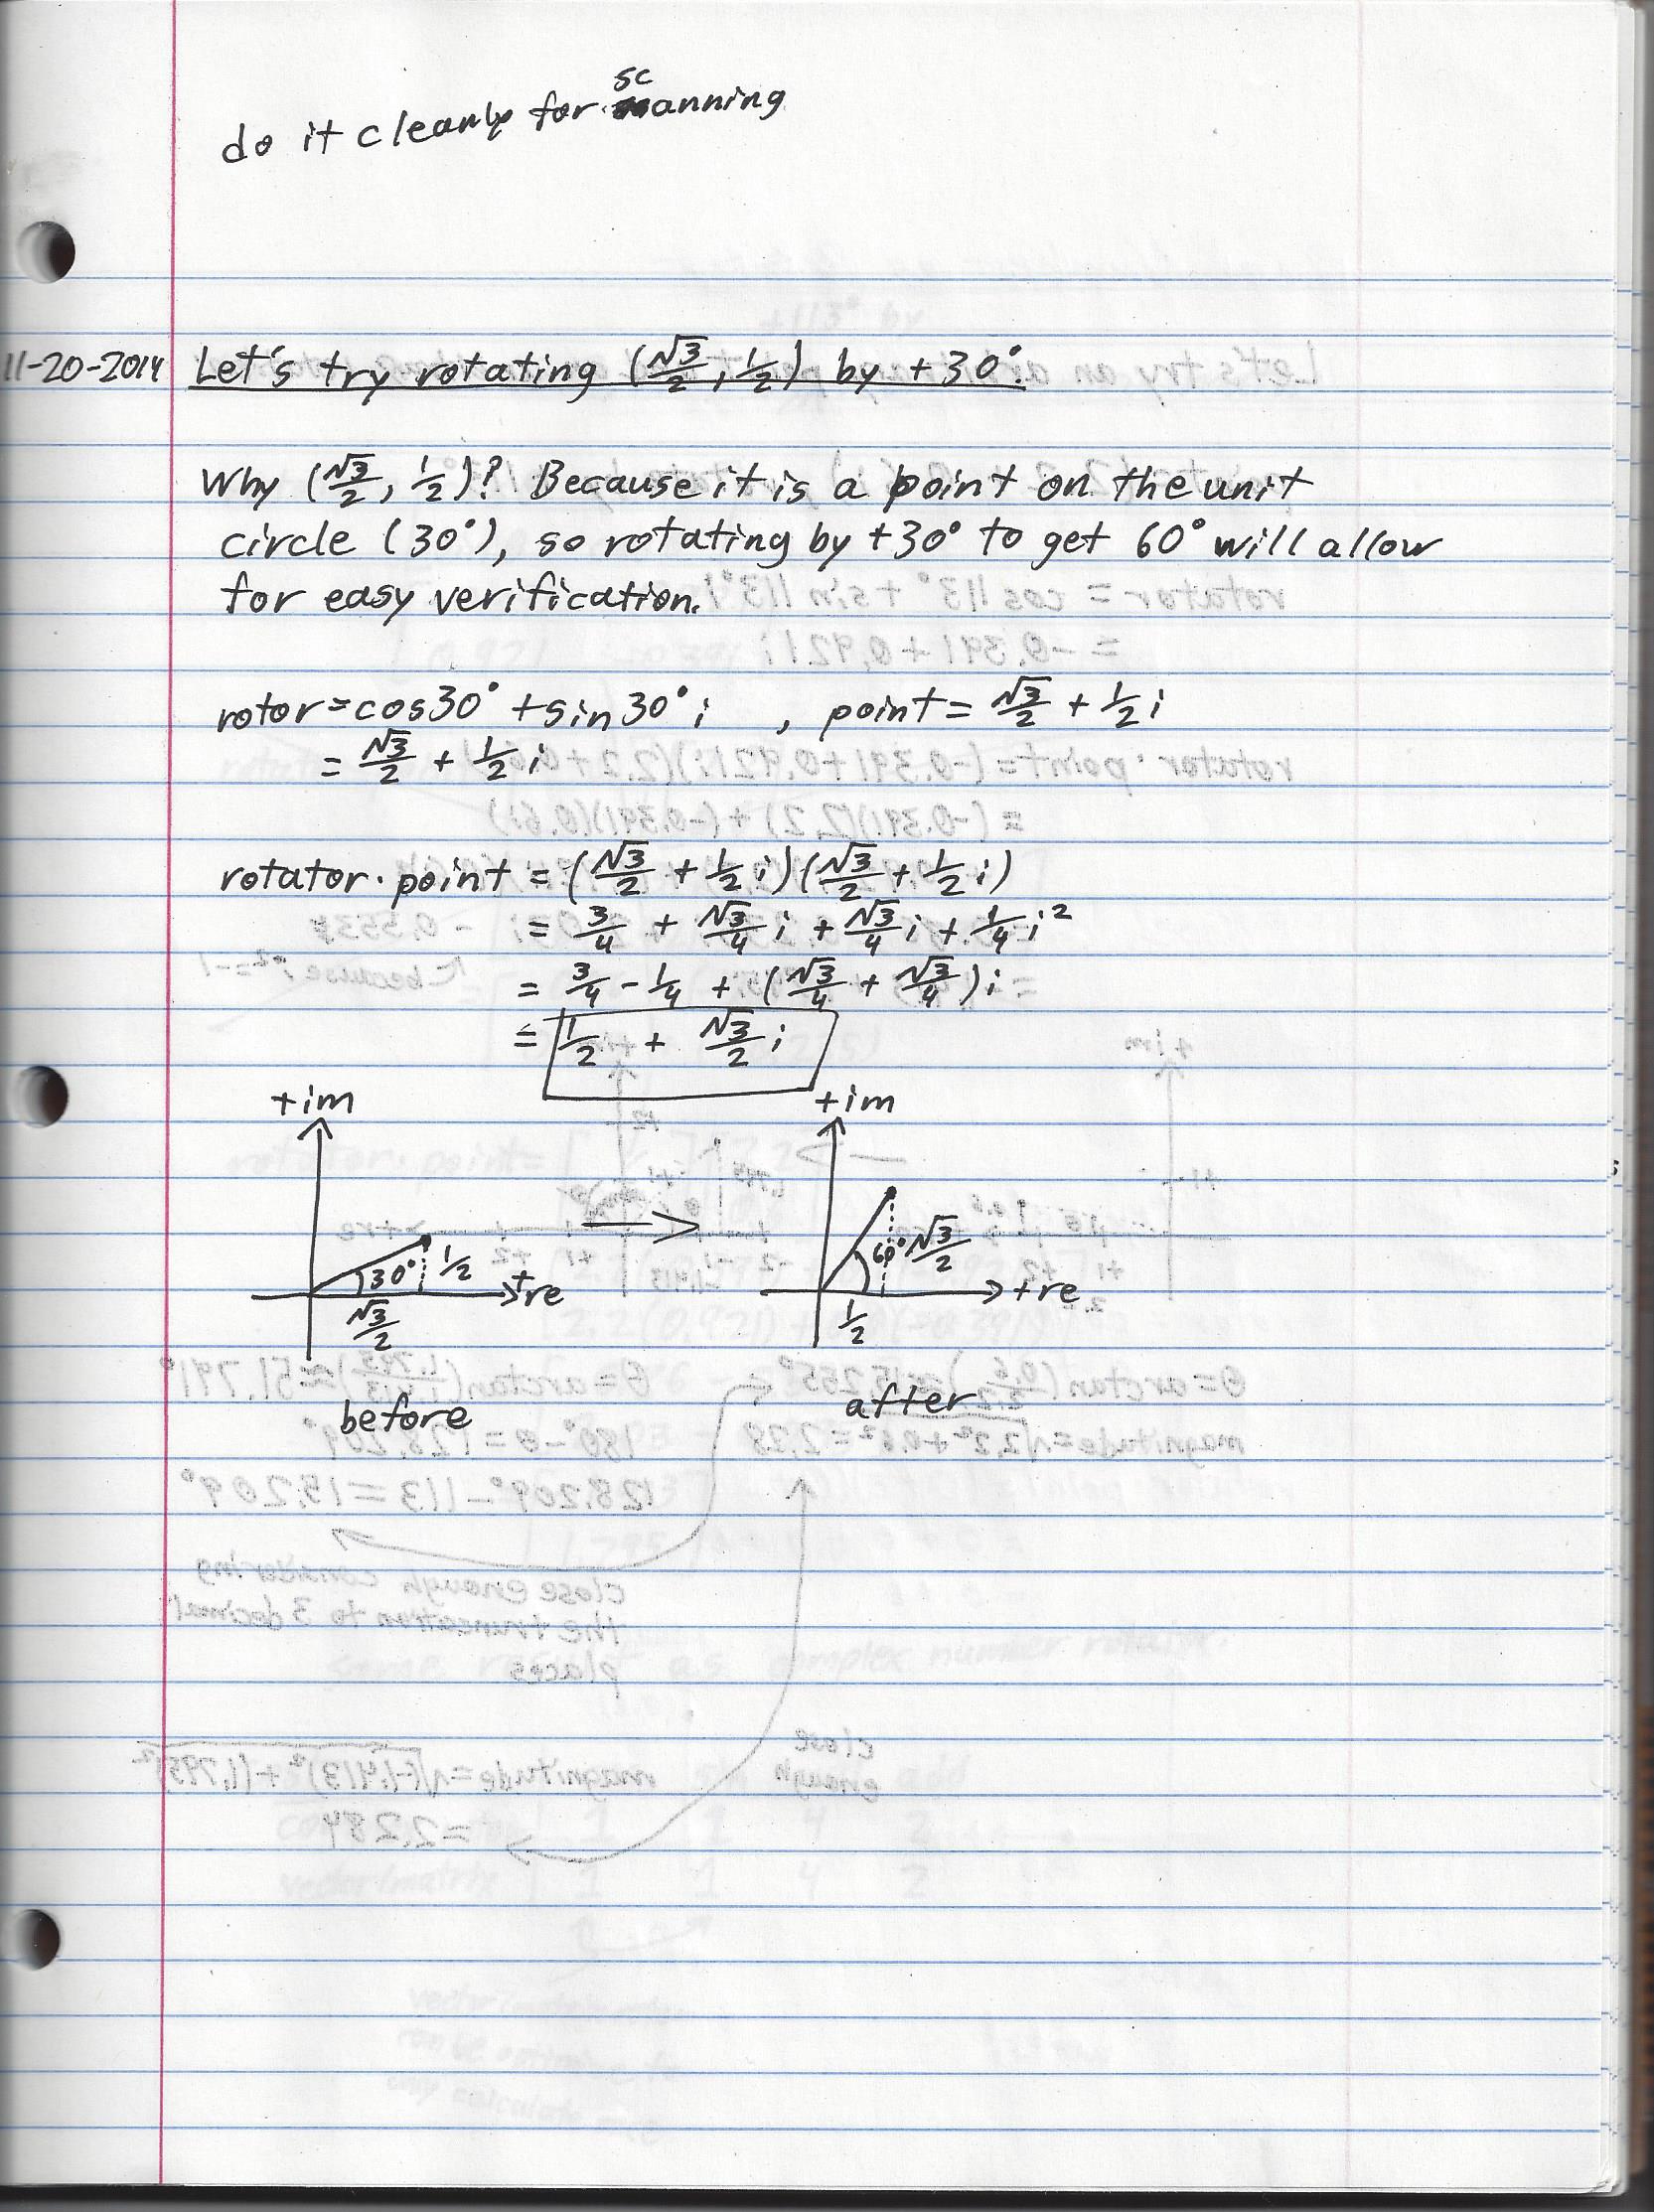 do it cleanly for scanning
11-20-2014 Let's try rotating (√3/2, 1/2) by +30°:
Why (√3/2, 1/2)? Because it is a point on the unit
circle (30°), so rotating by +30° to get 60° will allow
for easy verification.
rotor = cos30° + sin30° i , point = √3/2 + 1/2 i
= √3/2 + 1/2 i
rotator · point = (√3/2 + 1/2 i)(√3/2 + 1/2 i)
= 3/4 + √3/4 i + √3/4 i + 1/4 i²
= 3/4 - 1/4 + (√3/4 + √3/4) i
= 1/2 + √3/2 i
+im
30°
1/2
+re
√3/2
before
+im
60°
√3/2
+re
1/2
after